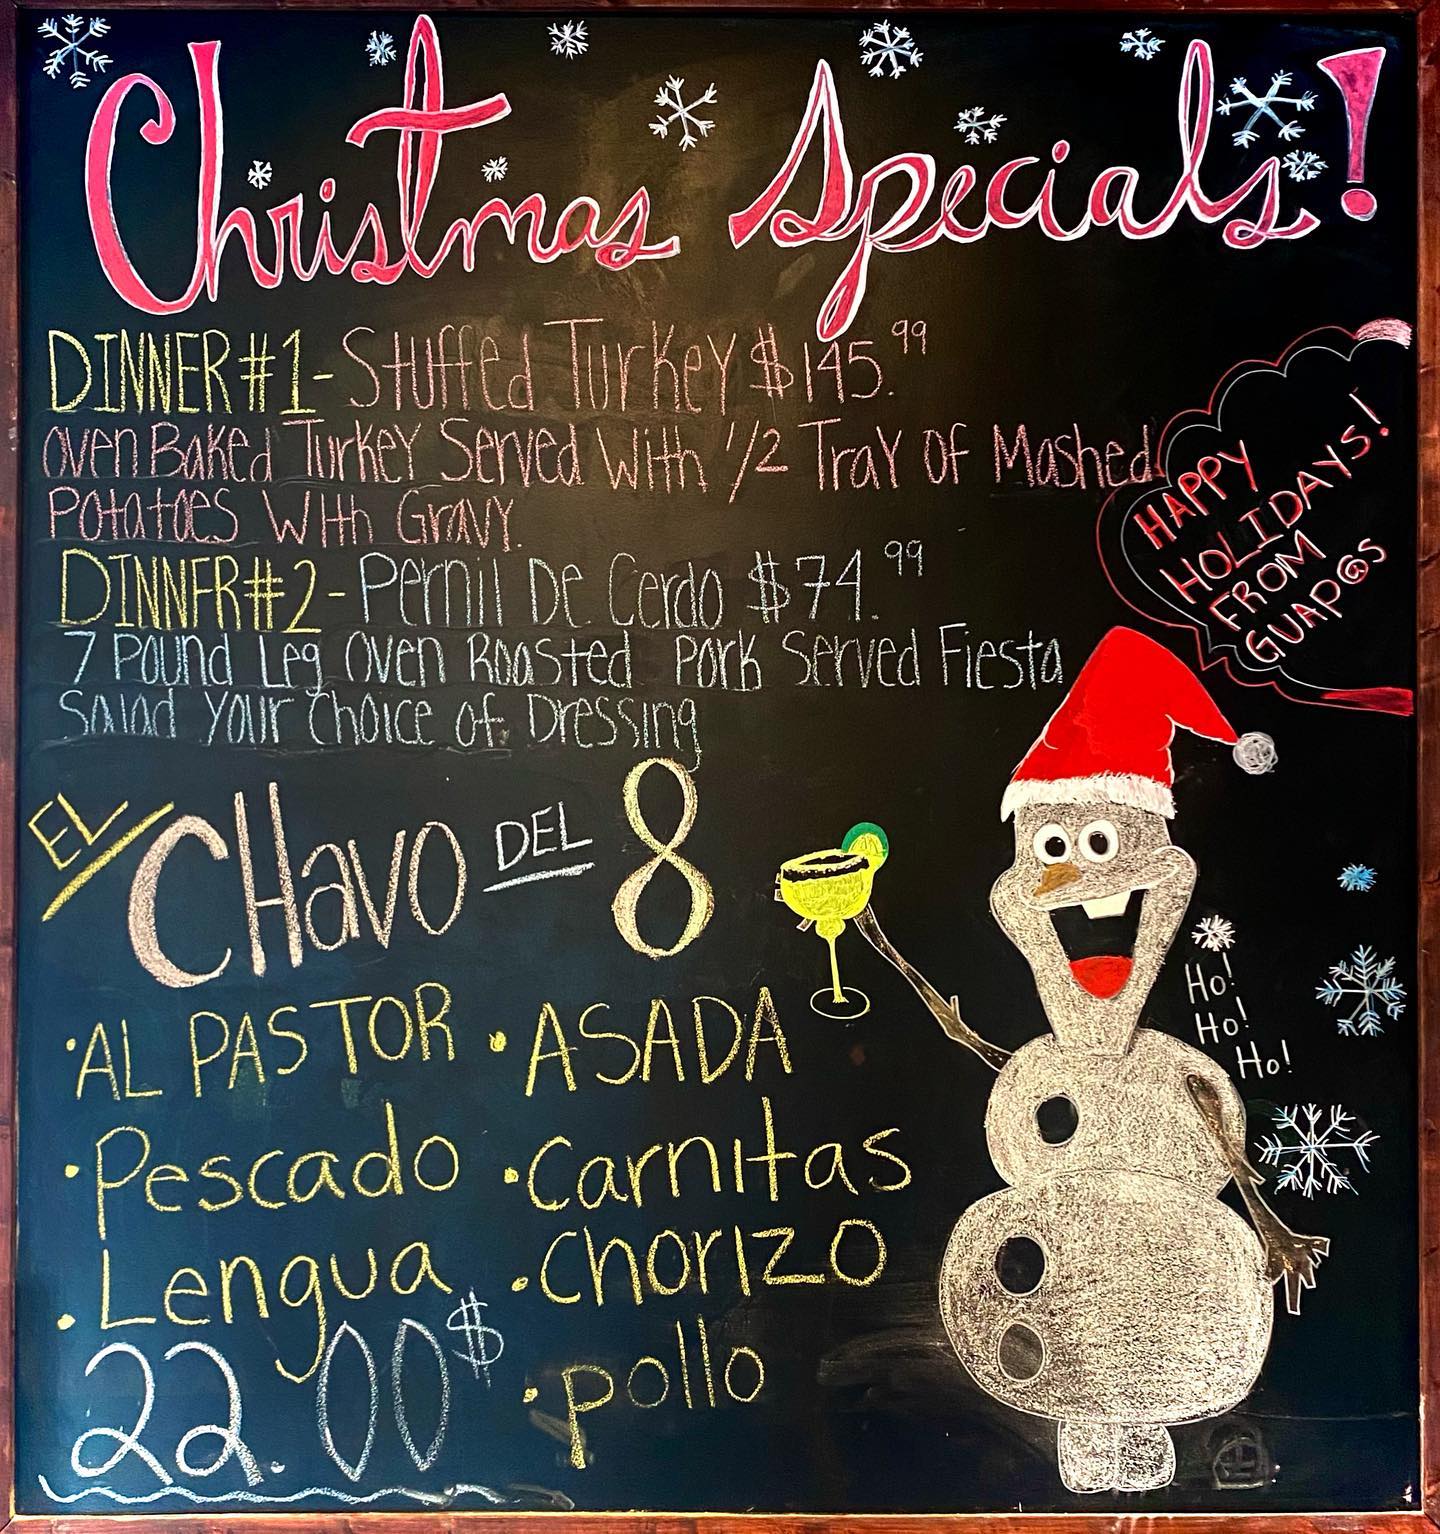 Christmas Specials!
DINNER #1 - Stuffed Turkey $145.99
Oven Baked Turkey Served With 1/2 Tray Of Mashed
Potatoes With Gravy.
DINNER #2 - Pernil De Cerdo $74.99
7 Pound Leg Oven Roasted Pork Served Fiesta
Salad Your Choice of Dressing
HAPPY
HOLIDAYS!
FROM
GUAP@S
EL CHavo DEL 8
• AL PASTOR • ASADA
• Pescado • Carnitas
• Lengua • Chorizo
22.00$ • pollo
Ho!
Ho!
Ho!